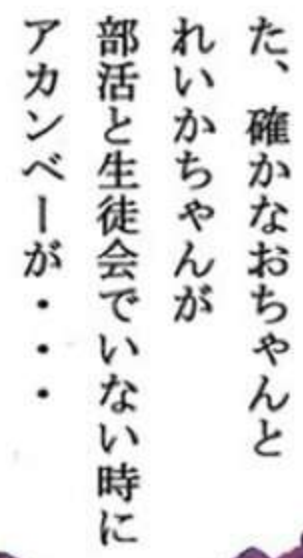 た、確かなおちゃんと
れいかちゃんが
部活と生徒会でいない時に
アカンベーが・・・